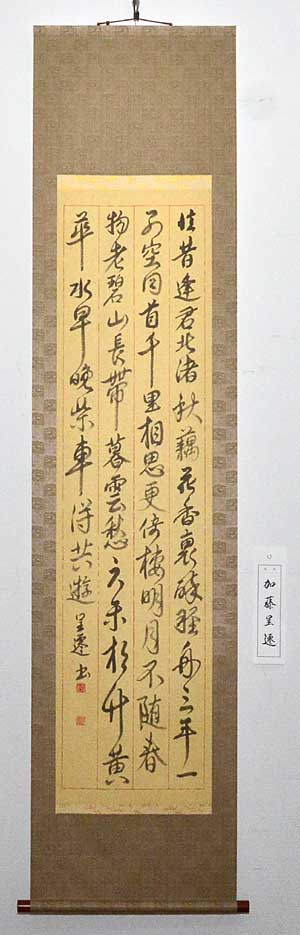 憶昔逢君北渚秋藕花香裏醉軽舟三年一
別空回首千里相思更倚楼明月不随春
物老碧山長帯暮雲愁松竹黄
華水早晩柴車得共遊 呈書
加藤呈